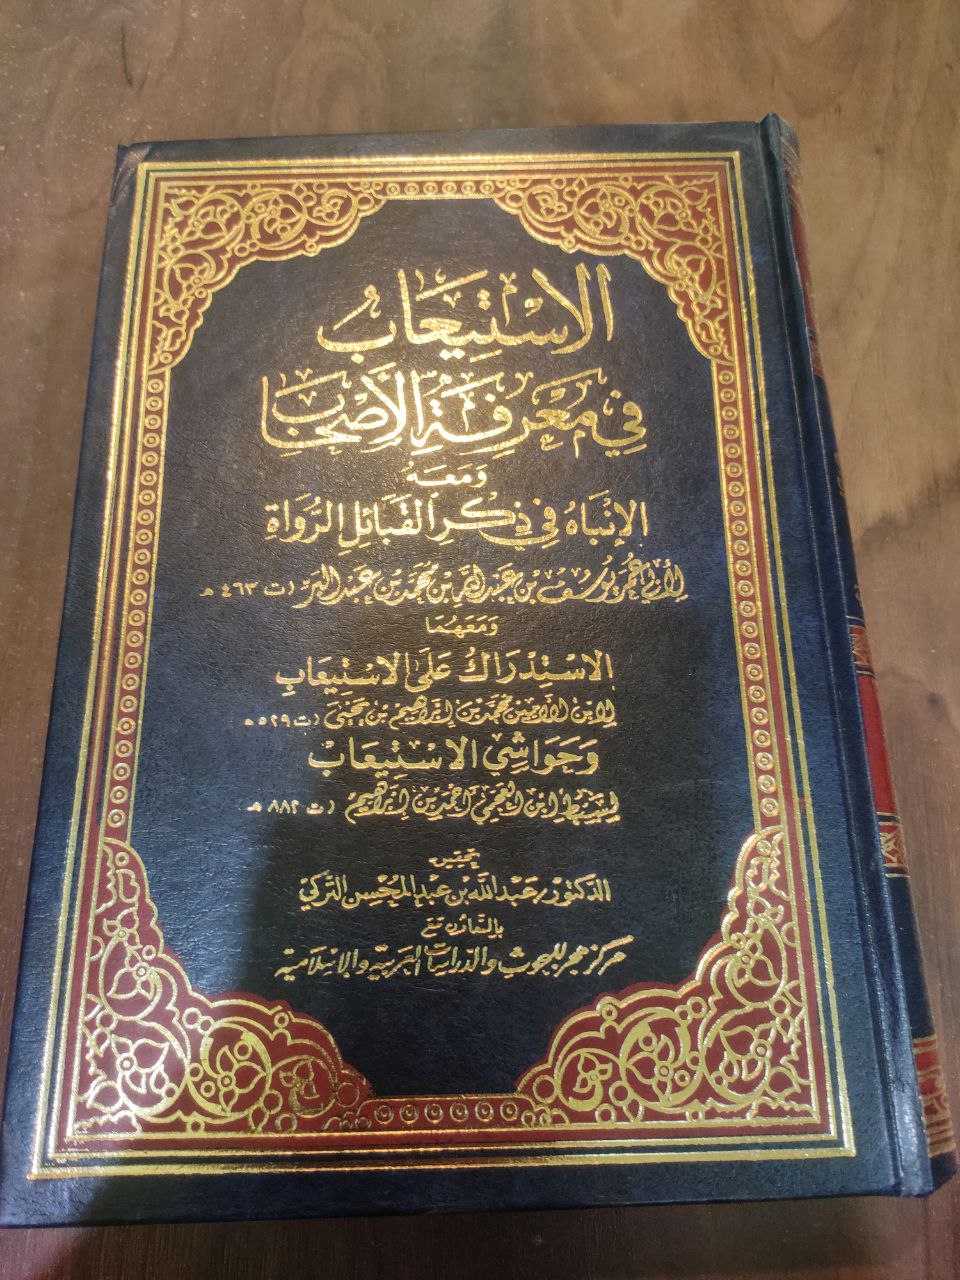 الاسْتِيعَابُ
فِي مَعْرِفَةِ الأَصْحَابِ
وَمَعَهُ
الإِنْبَاهُ فِي ذِكْرِ القَبَائِلِ الرُّوَاةِ
لِأَبِي عُمَرَ يُوسُفَ بْنِ عَبْدِ اللهِ بْنِ مُحَمَّدِ بْنِ عَبْدِ البَرِّ (ت ٤٦٣ هـ
وَمَعَهُمَا
الِاسْتِدْرَاكُ عَلَى الِاسْتِيعَابِ
لِابْنِ الأَمِينِ مُحَمَّد بْنِ إِبْرَاهِيمَ بْنِ يَحْيَى (ت ٥٢٩ ه
وَحَوَاشِي الِاسْتِيعَابِ
لِسِبْطِ ابْنِ العَجَمِي أَحْمَد بْن إِبْرَاهِيمَ (ت ٨٨٢ هـ
تحقيق
الدكتور/عبد الله بن عبد المحسن التركي
بالتعاون مع
مركز هجر للبحوث والدراسات العربية والإسلامية